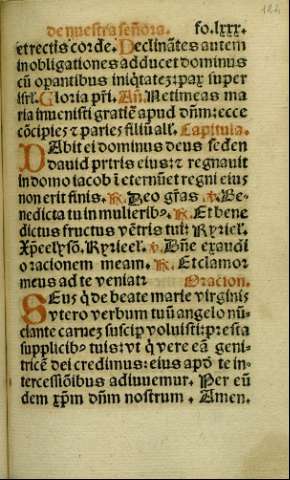 de nuestra señora. fo.lxxx.
et rectis corde. Declinãtes autem
in obligationes adducet dominus
cũ opantibus iniq̃tatez: pax super
isrl. Gloria pri. Añ. Ne timeas ma
ria inuenisti gratiẽ apud dñm: ecce
cõcipies ⁊ paries filiũ all'. Capitula.
DAbit ei dominus deus seden
dauid prtris eius: ⁊ regnauit
in domo iacob ĩ eternũ et regni eius
non erit finis. ℟. Deo grãs ℣. Be-
nedicta tu in mulieribꝰ. ℟. Et bene
dictus fructus vẽtris tui: Kyriel'.
Xp̃eelysõ. Kyrieel'. ℣. Dñe exaudi
orationem meam. ℟. Et clamor
meus ad te veniatr Oracion.
SEus q̃ de beate marie virginis
vtero verbum tuũ angelo nũ-
ciante carnez suscip voluisti: presta
supplicibꝰ tuis: vt q̃ vere eã geni-
tricẽ dei credimus: eius apd̃ te in-
tercessiõibus adiuuemur. Per eũ
dem xp̃m dñm nostrum. Amen.